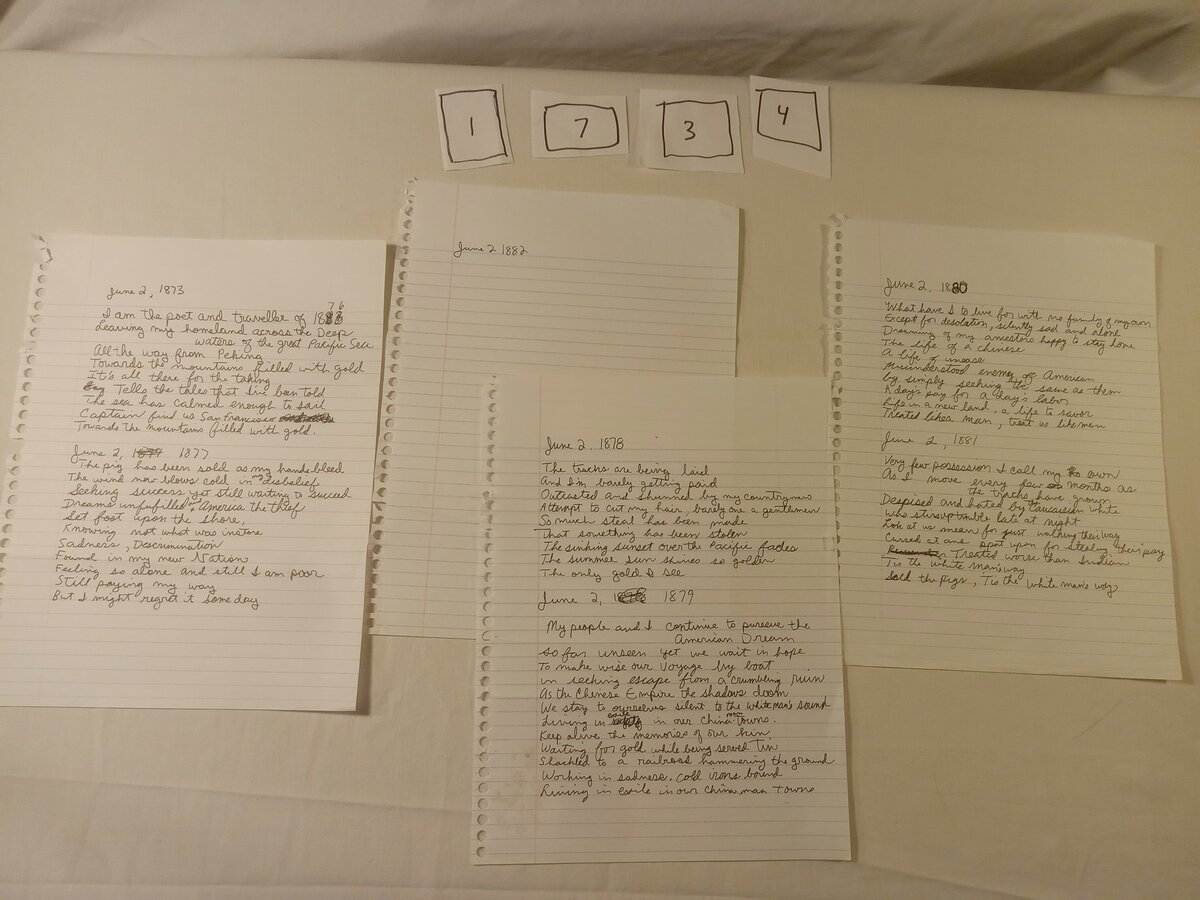 1
7
3
4
June 2, 1873
7 6
I am the poet and traveller of 18
Leaving my homeland across the Deep
waters of the great Pacific Sea
All the way from Peking
Towards the mountains filled with gold
It's all there for the taking
Tells the tales that I've been told
The sea has calmed enough to sail
Captain find us San Francisco
Towards the mountains filled with gold.
June 2, 1877
The pig has been sold as my hands bleed
The wind now blows cold in my disbelief
Seeking success yet still waiting to succeed
Dreams unfulfilled, America the thief
Set foot upon the shore,
Knowing not what was instore
Sadness, Descrimination
Found in my new Nation
Feeling so alone and still I am poor
Still paying my way
But I might regret it some day
June 2 1882
June 2. 1878
The tracks are being laid
And I'm barely getting paid
Outcasted and shunned by my countrymen
Attempt to cut my hair, barely are a gentlemen
So much steal has been made
That something has been stolen
The sinking sunset over the Pacific fades
The summer sun shines so golden
The only gold I see
June 2, 1879
My people and I continue to pursue the
American Dream
So far unseen yet we wait in hope
To make wise our voyage by boat
in seeking escape from a crumbling ruin
As the Chinese Empire the shadows doom
We stay to ourselves silent to the white man's sound
Living in exile in our China men towns.
Keep alive the memories of our kin
Waiting for gold while being served Tin
Shackled to a railroad hammering the ground
Working in sadness, cold irons bound
Living in exile in our China man towns
June 2, 1880
What have I to live for with no family of my own
Except for desolation, silently sad and alone
Dreaming of my ancestors happy to stay home
The life of a chinese
A life of unease
Misunderstood enemy of American
by simply seeking the same as them
A day's pay for a day's labor
Life in a new land, a life to savor
Treated like a man, treat us like men
June 2, 1881
Very few possession I call my own
As I move every few months as
the tracks have grown
Despised and hated by Caucassian white
Who stirs up trouble late at night
Look at us mean for just walking their way
Cursed at and spat upon for stealing their pay
Treated worse than Indian
Tis the white man's way
Sold the pigs, Tis the white man's way